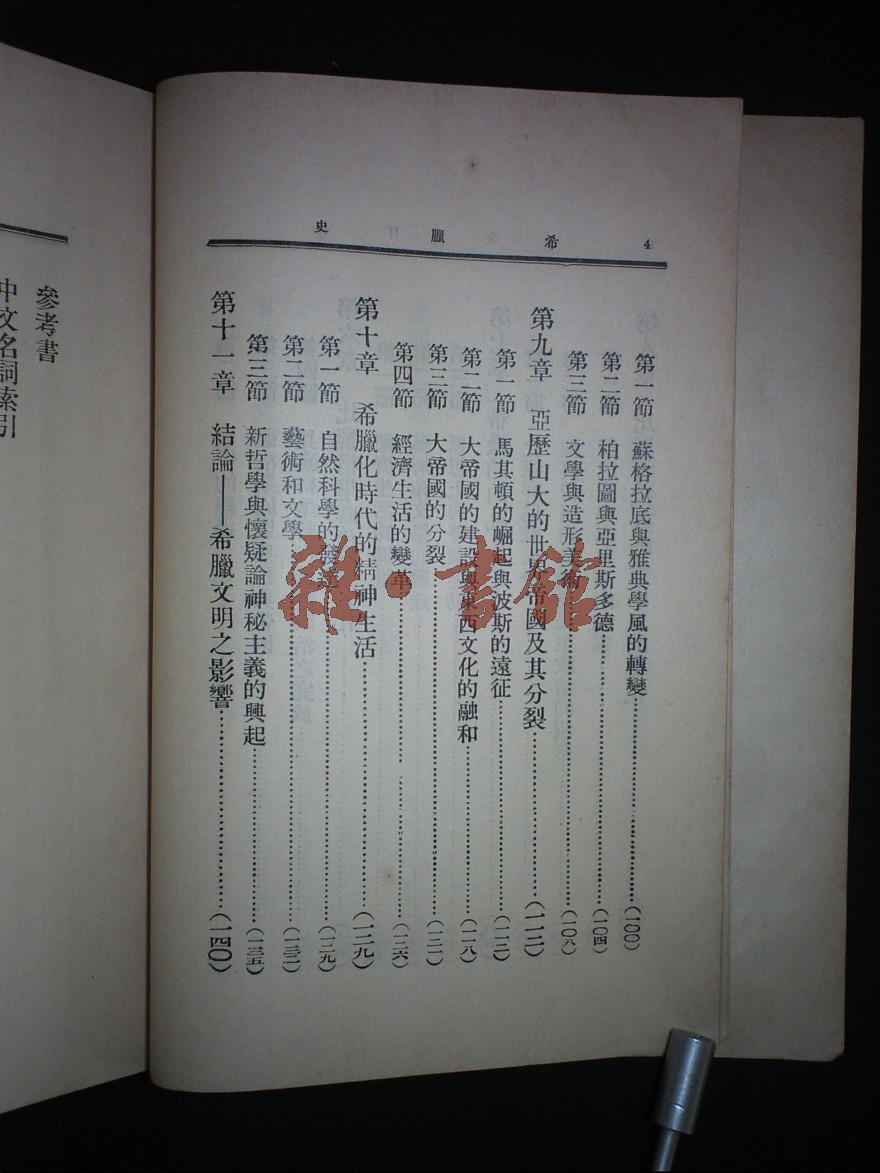 4 希臘史
第一節 蘇格拉底與雅典學風的轉變……(一〇〇)
第二節 柏拉圖與亞里斯多德……(一〇四)
第三節 文學與造形美術……(一〇八)
第九章 亞歷山大的世界帝國及其分裂……(一一二)
第一節 馬其頓的崛起與波斯的遠征……(一一二)
第二節 大帝國的建設與東西文化的融和……(一一八)
第三節 大帝國的分裂……(一二一)
第四節 經濟生活的變革……(一二六)
第十章 希臘化時代的精神生活……(一二九)
第一節 自然科學的發達……(一二九)
第二節 藝術和文學……(一三二)
第三節 新哲學與懷疑論神秘主義的興起……(一三五)
第十一章 結論——希臘文明之影響……(一四〇)
參考書
中文名詞索引
雜·書館